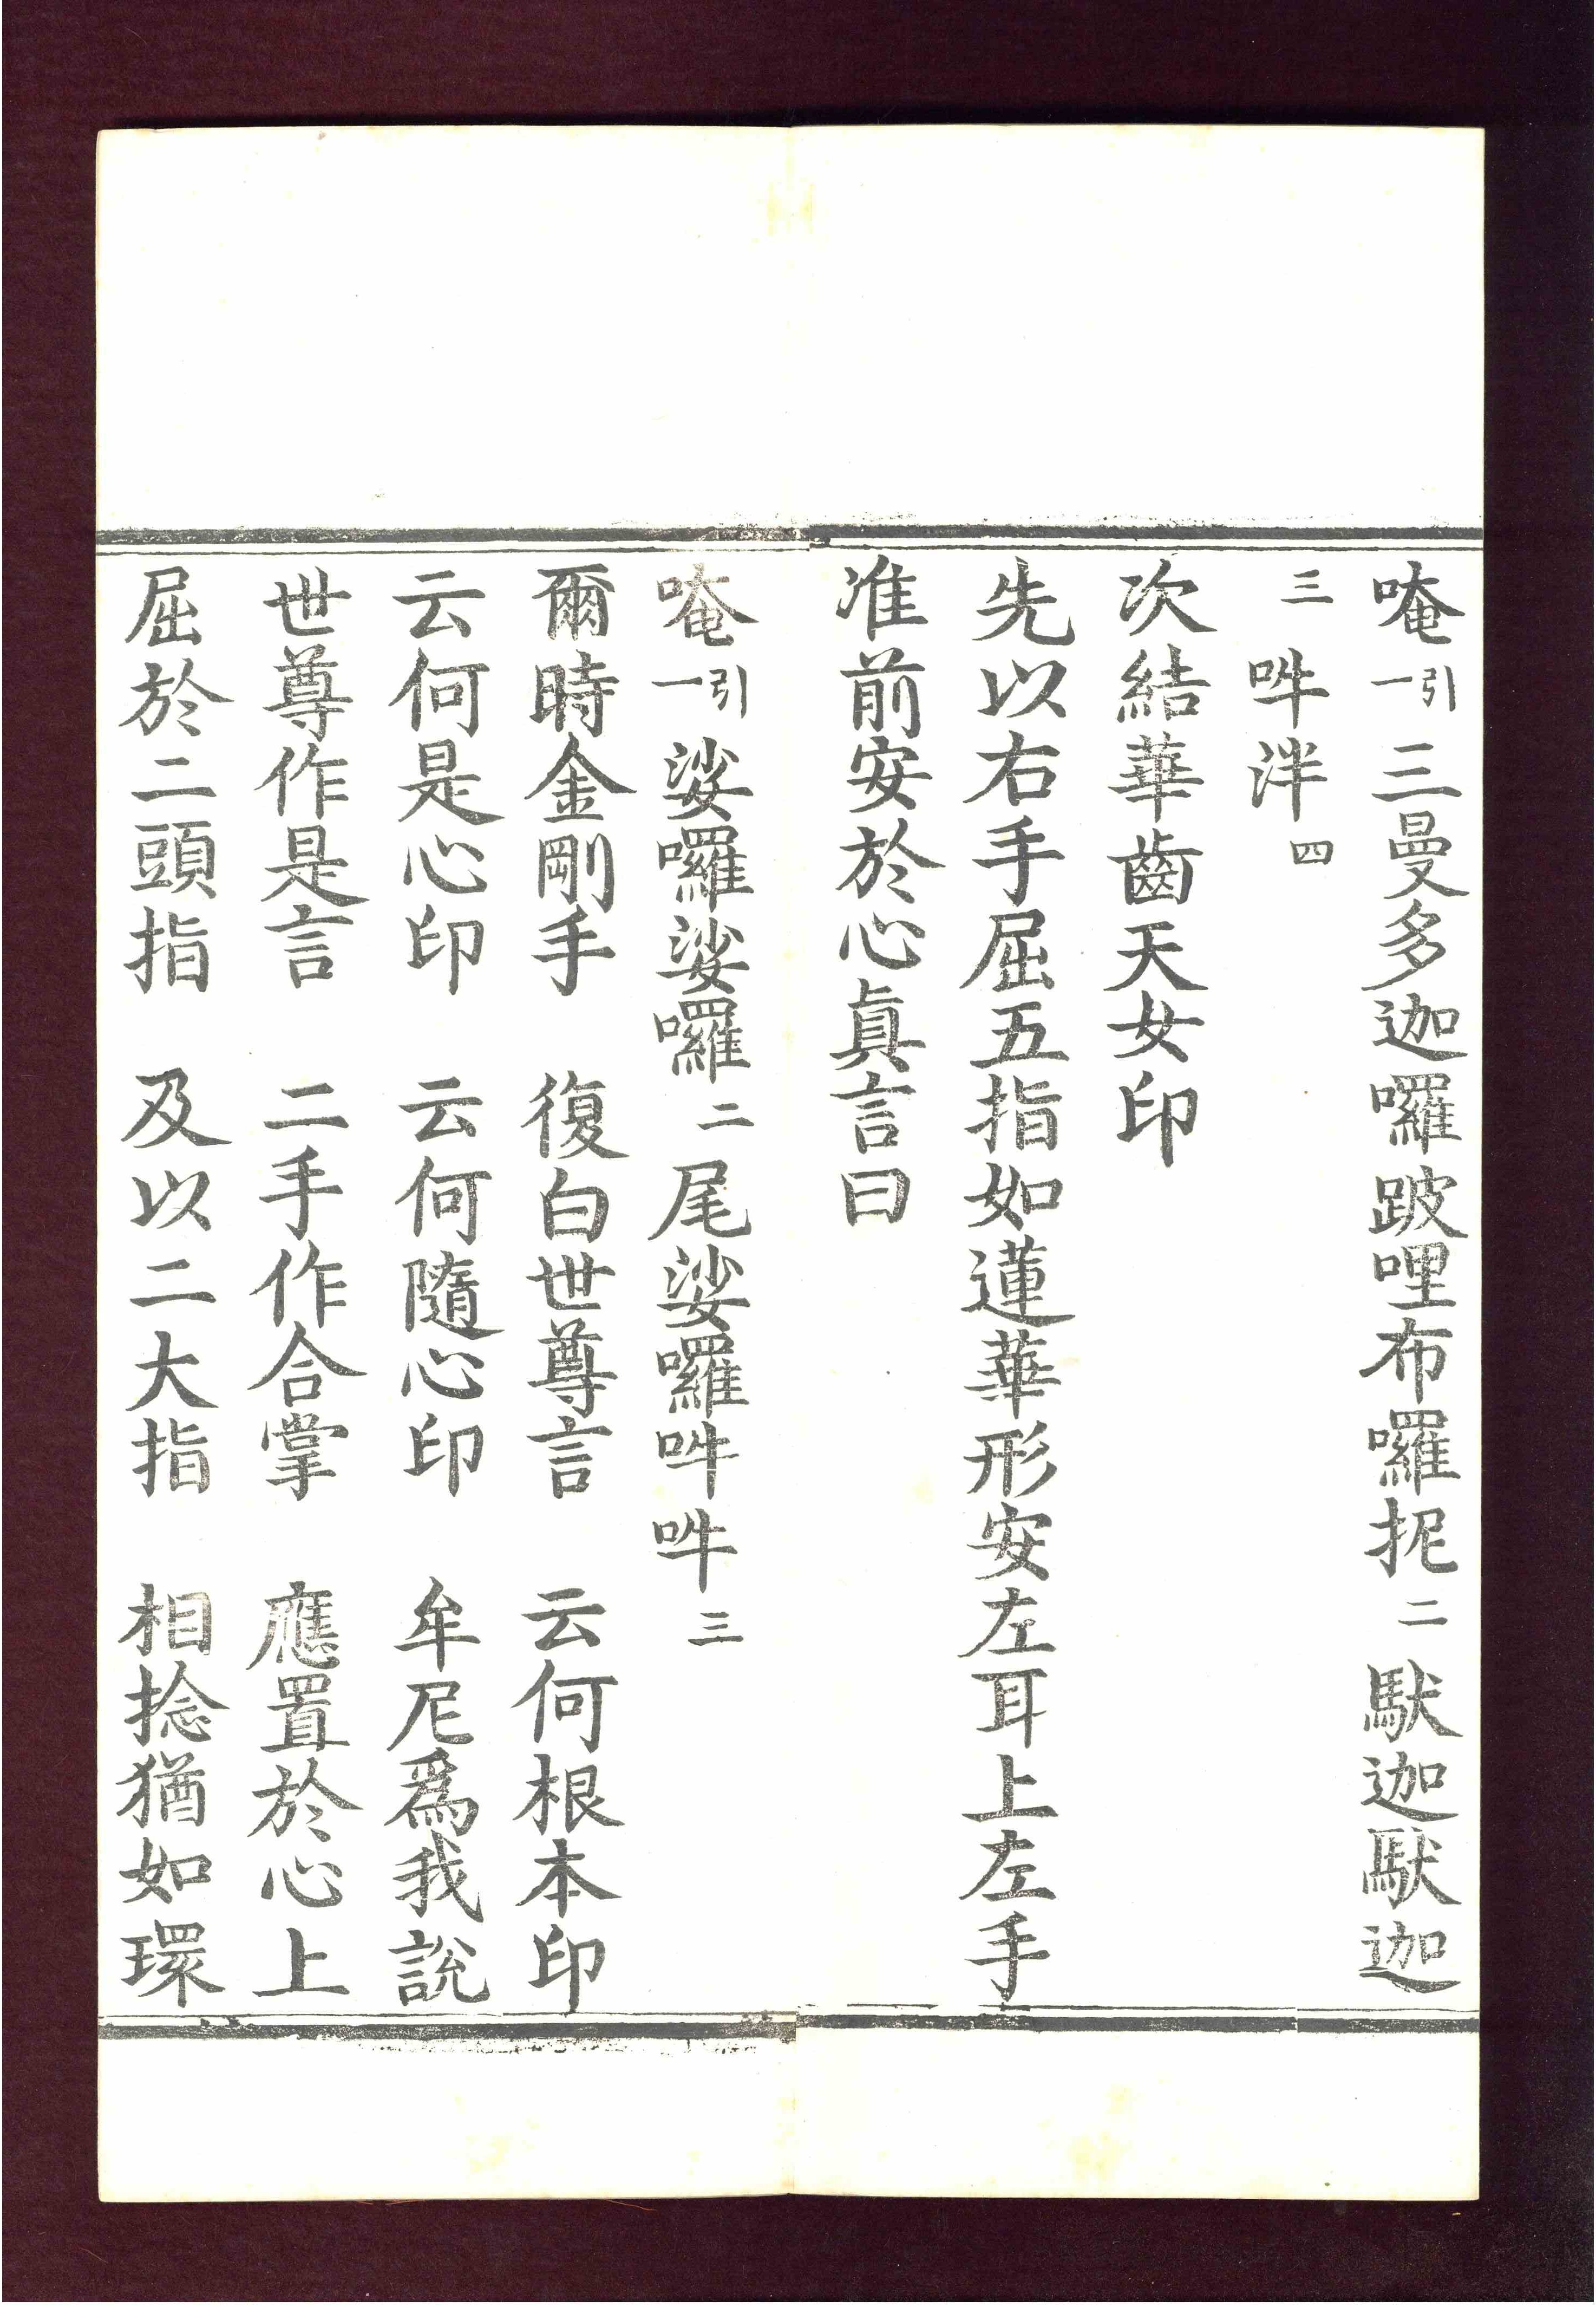 唵引一三曼多迦囉跛哩布囉抳二馱迦馱迦
三吽泮四
次結華齒天女印
先以右手屈五指如蓮華形安左耳上左手
准前安於心真言曰
唵引一娑囉娑囉二尾娑囉吽吽三
爾時金剛手　復白世尊言　云何根本印
云何是心印　云何隨心印　牟尼爲我說
世尊作是言　二手作合掌　應置於心上
屈於二頭指　及以二大指　相捻猶如環